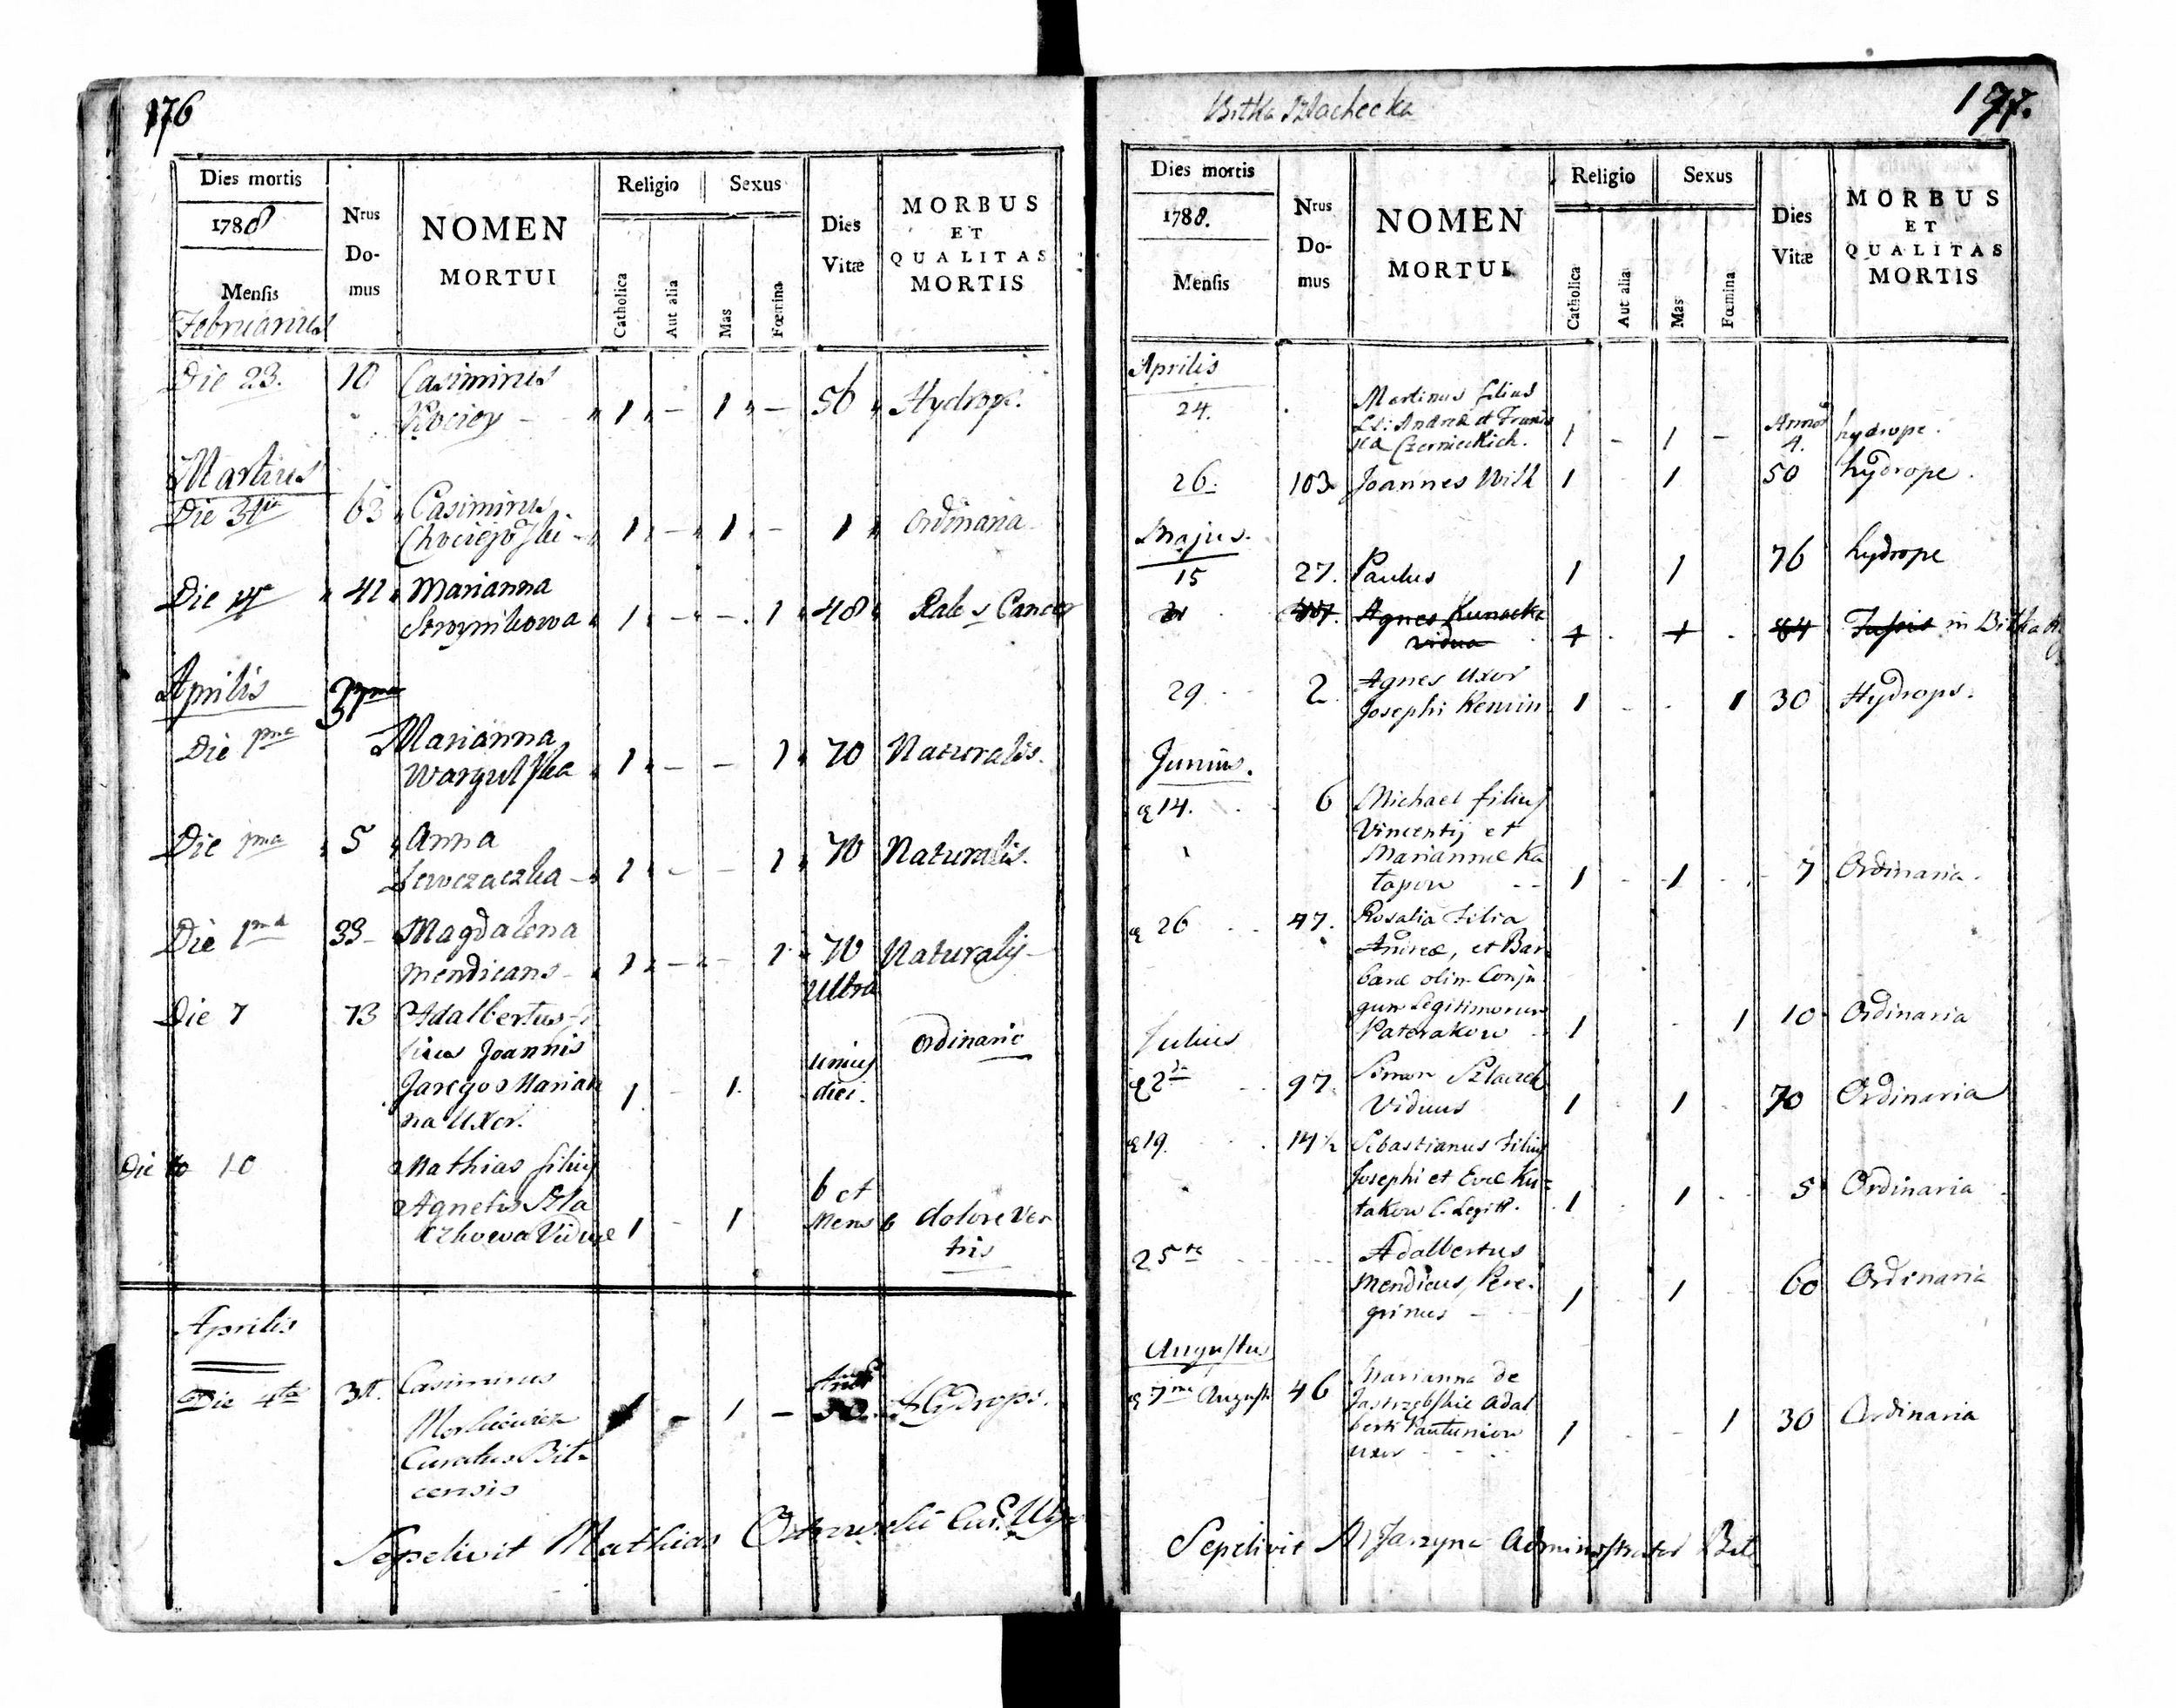 176
Dies mortis
1788
Mensis
Februarius
Nrus
Do-
mus
NOMEN
MORTUI
Religio
Sexus
Catholica
Aut alia
Mas
Fœmina
Dies
Vitæ
MORBUS
ET
QUALITAS
MORTIS
Die 23. 10 Casimirus
Kociey - 1 - 1 - 56 Hydrops.
Martius
Die 63 Casimirus
1 - 1 - 1 Ordinaria
Die 42 Marianna
1 - - 1 48 Cancer
Aprilis
Die 1ma Marianna
Wargulska 1 - - 1 70 Naturalis.
Die 1ma 5 Anna
1 - - 1 70 Naturalis.
Die 1ma 33 Magdalena
mendicans 1 - - 1 70 Naturalis
Ultra
Die 7 73 Adalbertus fi
lius Joannis unius Ordinaria
Marian 1 - 1 diei.
na Uxor.
Die 10 Mathias filius
Agnetis Szla 6 et
czkowa Viduæ 1 - 1 Mens 6 dolore Ven
tris
Aprilis
Die 4ta Casimirus
1 - 1 - 50 Hydrops.
Curatus Bit-
censis
Sepelivit Mathias
Bitka Szlachecka
177.
Dies mortis
1788.
Mensis
Nrus
Do-
mus
NOMEN
MORTUI
Religio
Sexus
Catholica
Aut alia
Mas
Fœmina
Dies
Vitæ
MORBUS
ET
QUALITAS
MORTIS
Aprilis
24. Martinus filius
Andreæ et Francis
Czernieckich. 1 - 1 - Annor 4. hydrope.
26. 103 Joannes Wilk 1 1 50 hydrope.
Majus.
15 27. Paulus 1 1 76 hydrope
Agnes Kunacka
vidua 84 Tussis in Bitka
29 2 Agnes Uxor
Josephi 1 - - 1 30 Hydrops.
Junius.
14. 6 Michael filius
Vincentij et
Mariannæ Ka
tapow 1 - 1 - 7 Ordinaria.
26 47. Rosalia filia
Andreæ, et Bar
baræ olim Conju
gum Legitimorum
Paterakow 1 - 1 10 Ordinaria
Julius
2da 97 Simon Szlaczek
Viduus 1 1 70 Ordinaria
19. 14½ Sebastianus filius
Josephi et Evæ Ku-
takow C. Legitt. 1 1 5 Ordinaria
25ta Adalbertus
Mendicus, Pere-
grinus 1 1 60 Ordinaria
Augustus
7ma Augusti 46 Marianna de
Jastrzębskie Adal
berti 1 - - 1 30 Ordinaria
uxor
Sepelivit Jarzyna Administrator Bit